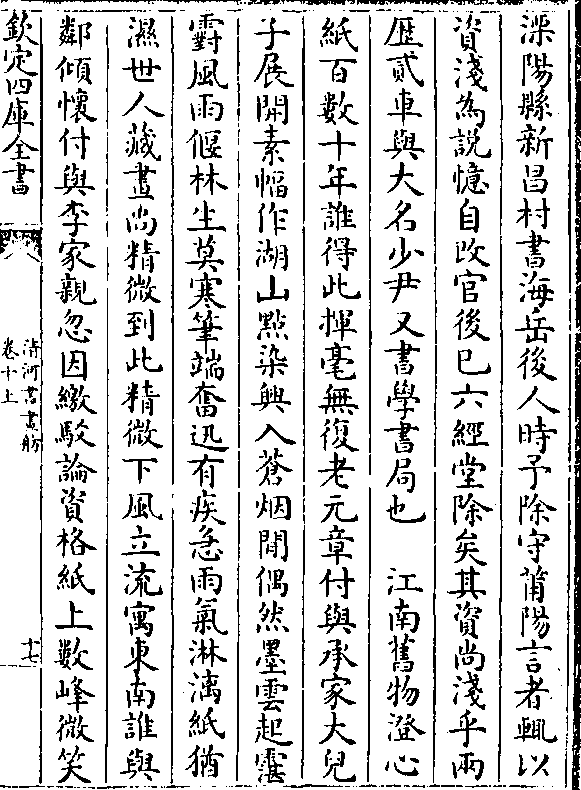 溧陽縣新昌村書海岳後人時予除守莆陽言者輒以
資淺為說憶自改官後已六經堂除矣其資尚淺乎兩
歴貳車與大名少尹又書學書局也　江南舊物澄心
紙百數十年誰得此揮毫無復老元章付與承家大兒
子展開素幅作湖山點染興入蒼烟閒偶然墨雲起霮
䨴風雨偃林生莫寒筆端奮迅有疾急雨氣淋漓紙猶
濕世人藏畫尚精微到此精微下風立流寓東南誰與
鄰傾懷付與李家親忽因繳駁論資格紙上數峰微笑
欽定四庫全書
清河書畫舫
卷十上
十七